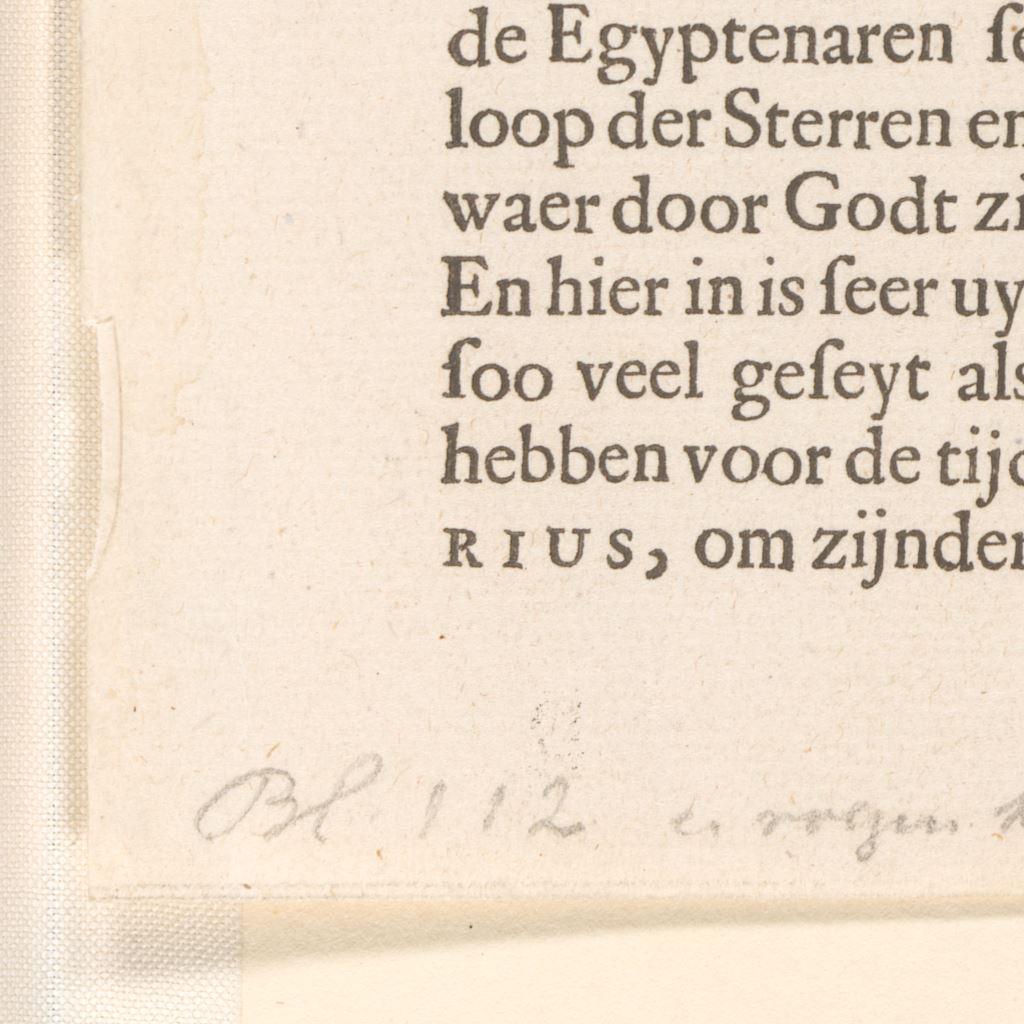 de Egyptenaren ſe
loop der Sterren en
waer door Godt zi
En hier in is ſeer uy
ſoo veel geſeyt als
hebben voor de tijd
RIUS, om zijnder
Bl. 112